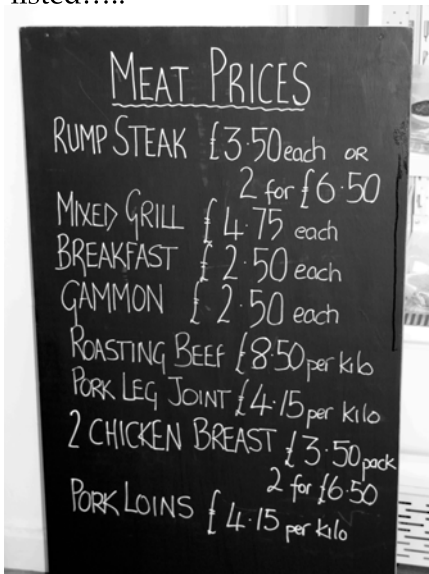 listed.....
MEAT PRICES
RUMP STEAK £3.50 each OR
2 for £6.50
MIXED GRILL £4.75 each
BREAKFAST £2.50 each
GAMMON £2.50 each
ROASTING BEEF £8.50 per kilo
PORK LEG JOINT £4.15 per kilo
2 CHICKEN BREAST £3.50 pack
2 for £6.50
PORK LOINS £4.15 per kilo